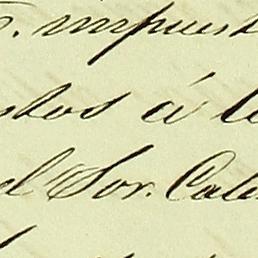 impuest
stos á
el Sor. Cale